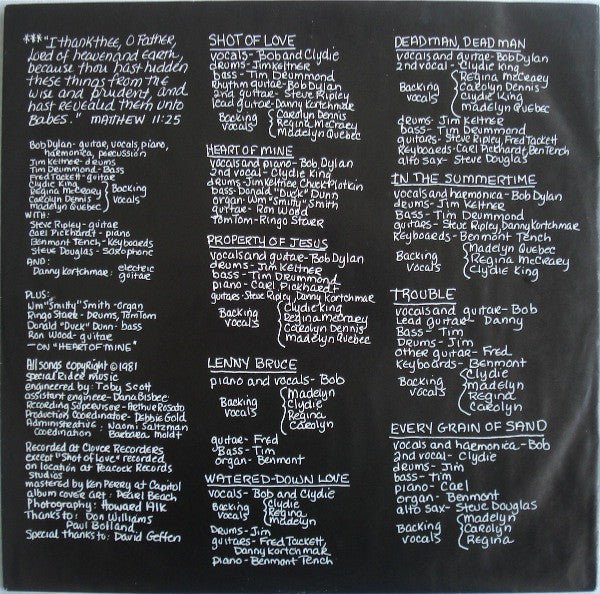 ***"I thank thee, O Father,
Lord of heaven and Earth,
because thou hast hidden
these things from the
wise and prudent, and
hast revealed them unto
Babes." MATTHEW 11:25
Bob Dylan - guitar, vocals, piano,
harmonica, percussion
Jim Keltner - drums
Tim Drummond - Bass
Fred Tackett - guitar
Clydie King
Regina McCreary
Carolyn Dennis
Madelyn Quebec
Backing
vocals
WITH:
Steve Ripley - guitar
Carl Pickhardt - piano
Benmont Tench - Keyboards
Steve Douglas - Saxophone
AND:
Danny Kortchmar: electric
guitar
PLUS:
Wm "Smitty" Smith - organ
Ringo Starr - Drums, TomTom
Donald "Duck" Dunn - bass
Ron Wood - guitar
- ON "HEART OF MINE"
All songs copyright © 1981
Special Rider Music
engineered by: Toby Scott
assistant engineer - Dana Bisbee
Recording Supervisor - Arthur Rosato
Production Coordinator - Debbie Gold
Administrative : Naomi Saltzman
Coordination Barbara Moldt
Recorded at Clover Recorders
except "Shot of Love" recorded
on location at Peacock Records
Studios
mastered by Ken Perry at Capitol
album cover art: Pearl Beach
Photography: Howard Alk
Thanks to: Don Williams
Paul Bolland
Special thanks to: David Geffen
SHOT OF LOVE
vocals - Bob and Clydie
drums - Jim Keltner
bass - Tim Drummond
Rhythm guitar - Bob Dylan
2nd guitar - Steve Ripley
lead guitar - Danny Kortchmar
Backing
vocals
Carolyn Dennis
Regina McCrary
Madelyn Quebec
HEART OF MINE
vocals and piano - Bob Dylan
2nd vocal - Clydie King
drums - Jim Keltner, Chuck Plotkin
Bass - Donald "Duck" Dunn
organ - Wm "Smitty" Smith
guitar - Ron Wood
TomTom - Ringo Starr
PROPERTY OF JESUS
Vocals and guitar - Bob Dylan
drums - Jim Keltner
bass - Tim Drummond
piano - Carl Pickhardt
guitars - Steve Ripley, Danny Kortchmar
Backing
vocals
Clydie King
Regina McCreary
Carolyn Dennis
Madelyn Quebec
LENNY BRUCE
piano and vocals - Bob
Backing
vocals
Madelyn
Clydie
Regina
Carolyn
guitar - Fred
Bass - Tim
organ - Benmont
WATERED-DOWN LOVE
Vocals - Bob and Clydie
Backing
vocals
Clydie
Regina
Madelyn
Drums - Jim
guitars - Fred Tackett,
Danny Kortchmar
piano - Benmont Tench
DEAD MAN, DEAD MAN
vocals and guitar - Bob Dylan
2nd vocal - Clydie King
Backing
vocals
Regina McCreary
Carolyn Dennis
Clydie King
Madelyn Quebec
drums - Jim Keltner
bass - Tim Drummond
guitars - Steve Ripley, Fred Tackett
Keyboards - Carl Pickhardt, Ben Tench
alto sax - Steve Douglas
IN THE SUMMERTIME
vocals and harmonica - Bob Dylan
drums - Jim Keltner
Bass - Tim Drummond
guitars - Steve Ripley, Danny Kortchmar
Keyboards - Benmont Tench
Backing
vocals
Madelyn Quebec
Regina McCreary
Clydie King
TROUBLE
vocals and guitar - Bob
Lead guitar - Danny
Bass - Tim
Drums - Jim
other guitar - Fred
Keyboards - Benmont
Backing
vocals
Clydie
Madelyn
Regina
Carolyn
EVERY GRAIN OF SAND
vocals and harmonica - Bob
2nd vocal - Clydie
drums - Jim
bass - Tim
piano - Carl
organ - Benmont
alto sax - Steve Douglas
Backing
vocals
Madelyn
Carolyn
Regina